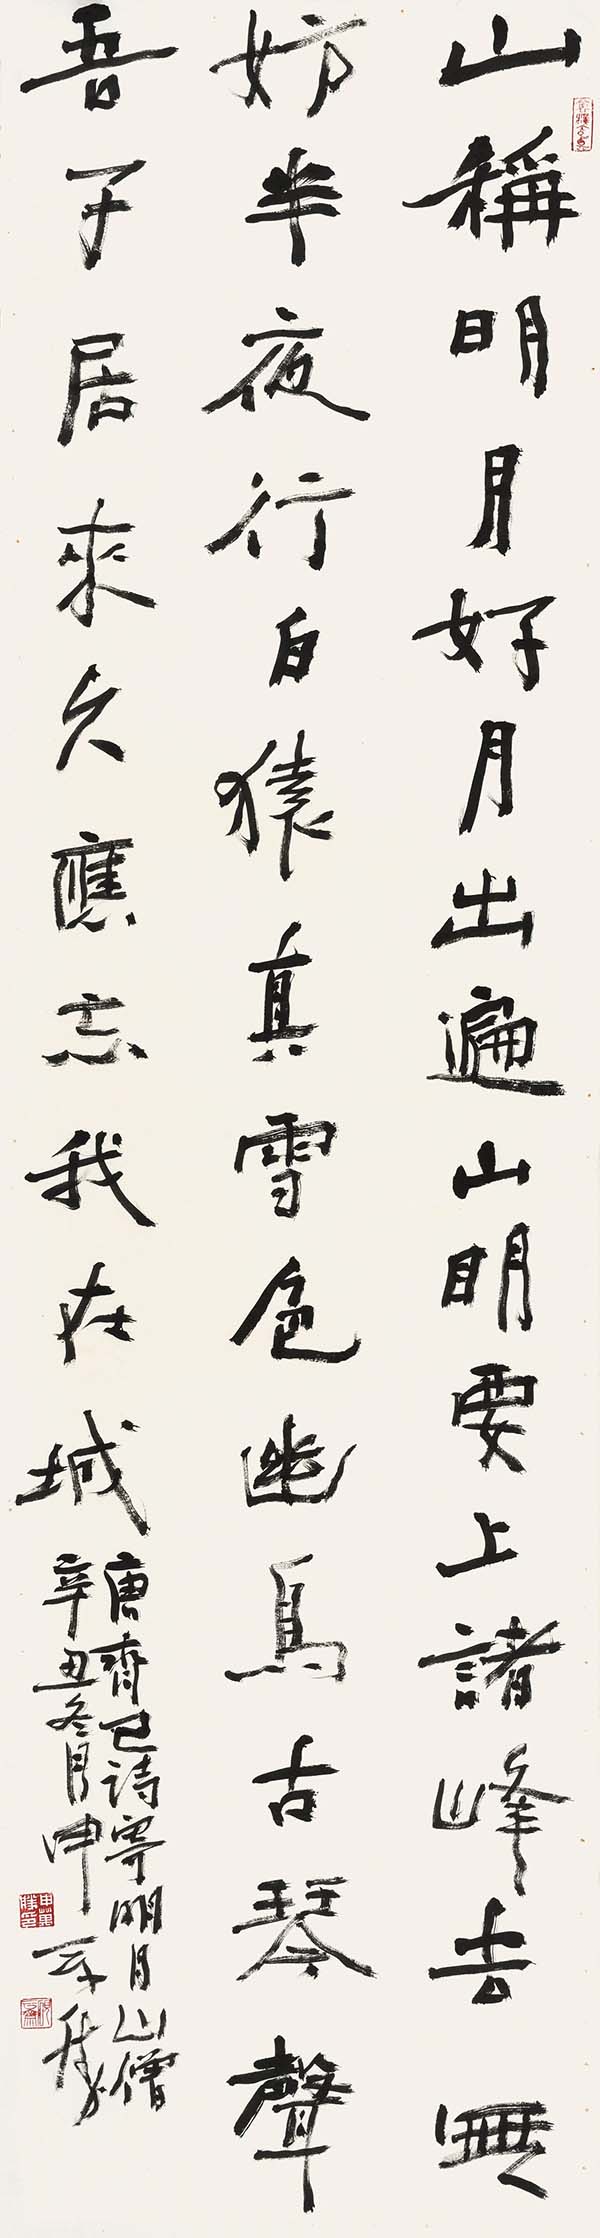 山稱明月好月出遍山明要上諸峰去無
妨半夜行白猿真雪色幽鳥古琴聲
吾子居來久應忘我在城
唐齊己詩寄明月山僧
辛丑冬月申万胜
申萬勝印